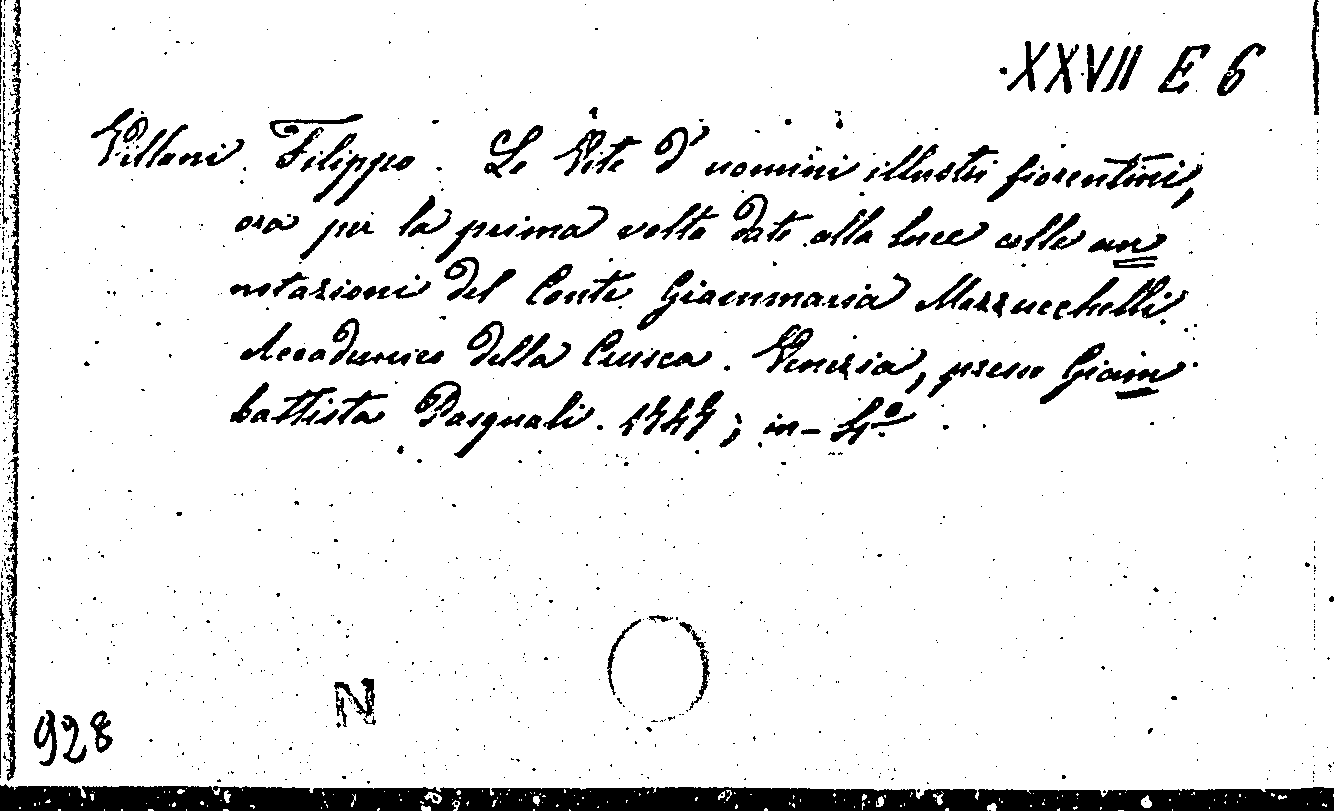 XXVII E 6
Villani Filippo. Le Vite d'uomini illustri fiorentini,
ora per la prima volta date alla luce colle an=
notazioni del Conte Giammaria Mazzucchelli
Accademico della Crusca. Venezia, presso Giam-
battista Pasquali. 1747; in-4º
N
928